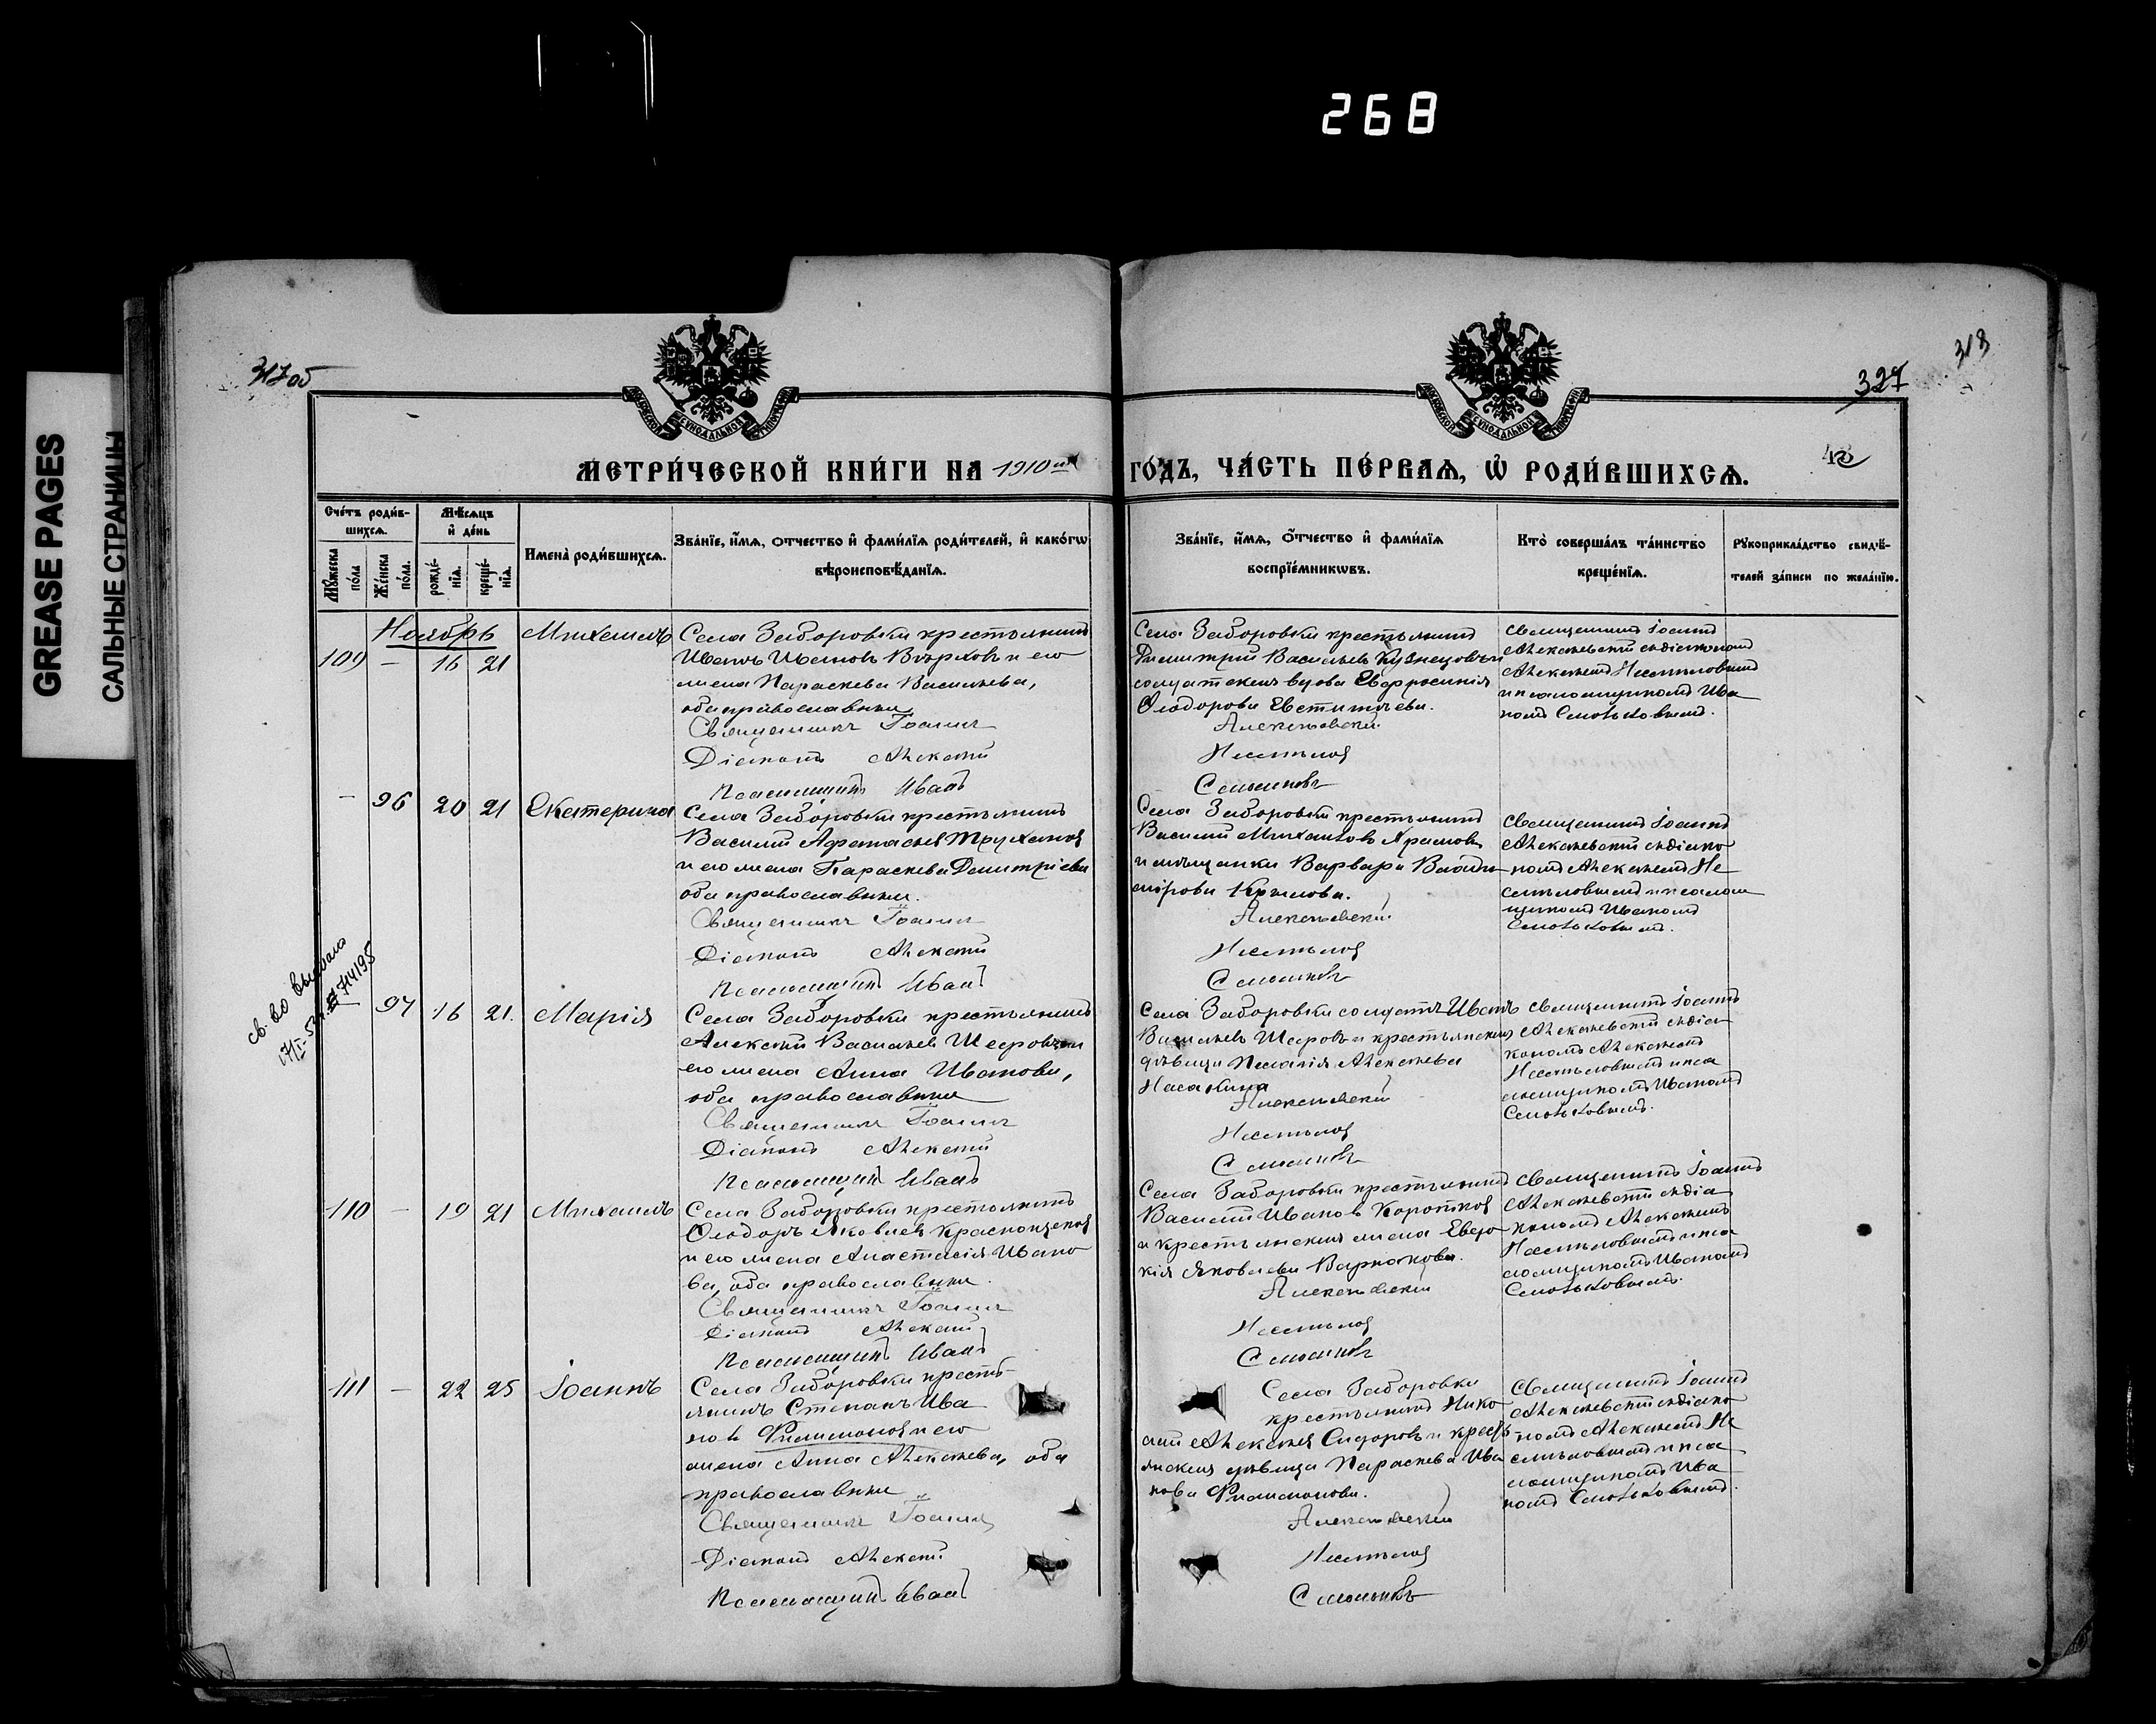 268
GREASE PAGES
САЛЬНЫЕ СТРАНИЦЫ
317 об
327
318
МЕТРИ́ЧЕСКОЙ КНИ́ГИ НА 1910 й ГО́ДЪ, ЧА́СТЬ ПЕ́РВАѦ, Ѡ҆ РОДИ́ВШИХСѦ.
Сче́тъ роди́в-
шихсѧ.
Мѣ́сѧцъ
и҆ де́нь
Мꙋ́жеска по́ла
Же́нска по́ла.
рожде́-
нїѧ.
креще́-
нїѧ.
Имена̀ роди́вшихсѧ.
Зва́нїе, и҆́мѧ, ѻ҆́тчество и҆ фами́лїѧ роди́телей, и҆ како́гѡ
вѣроисповѣ́данїѧ.
Зва́нїе, и҆́мѧ, ѻ҆́тчество и҆ фами́лїѧ
воспрїе́мникѡвъ.
Кто̀ соверша́лъ та́инство
креще́нїѧ.
Рꙋкоприкла́дство свидѣ́-
телей за́писи по жела́нїю.
Ноябрь
109 – 16 21
Михаилъ
Села Заборовки крестьянинъ
Иванъ Ивановъ Вѣрховъ и его
жена Параскева Васильева,
оба православные
Священникъ Іоаннъ
Діаконъ Алексѣй
Псаломщикъ Иванъ
Села Заборовки крестьянинъ
Димитрій Васильевъ Кузнецовъ и
солдатская вдова Евфросинія
Ѳеодорова Евстигнѣева.
Алексѣевскій
Несмѣловъ
Смольковъ
Священникъ Іоаннъ
Алексѣевскій съ діакономъ
Алексѣемъ Несмѣловымъ
и псаломщикомъ Ива
номъ Смольковымъ.
– 96 20 21
Екатерина
Села Заборовки крестьянинъ
Василій Афанасьевъ Труханов
и его жена Параскева Димитріева
оба православные.
Священникъ Іоаннъ
Діаконъ Алексѣй
Псаломщикъ Иванъ
Села Заборовки крестьянинъ
Василій Михайловъ Храмовъ
и мѣщанка Варвара Влади
мірова Крылова.
Алексѣевскій
Несмѣловъ
Смольковъ
Священникъ Іоаннъ
Алексѣевскій съ діако
номъ Алексѣемъ Не
смѣловымъ и псалом
щикомъ Иваномъ
Смольковымъ.
св. во выдано
– 97 16 21.
Марія
Села Заборовки крестьянинъ
Алексѣй Васильевъ Шаровъ и
его жена Анна Иванова,
оба православные
Священникъ Іоаннъ
Діаконъ Алексѣй
Псаломщикъ Иванъ
Села Заборовки солдатъ Иванъ
Васильевъ Шаровъ и крестьянская
дѣвица Пелагія Алексѣева
Насакина
Алексѣевскій
Несмѣловъ
Смольковъ
Священникъ Іоаннъ
Алексѣевскій съ діа
кономъ Алексѣемъ
Несмѣловымъ и пса
ломщикомъ Иваномъ
Смольковымъ.
110 – 19 21
Михаилъ
Села Заборовки крестьянинъ
Ѳеодоръ Яковлевъ Краснощековъ
и его жена Анастасія Ивано
ва, оба православные.
Священникъ Іоаннъ
Діаконъ Алексѣй
Псаломщикъ Иванъ
Села Заборовки крестьянинъ
Василій Ивановъ Коротковъ
и крестьянская жена Евдо
кія Яковлева Варнакова.
Алексѣевскій
Несмѣловъ
Смольковъ
Священникъ Іоаннъ
Алексѣевскій съ діа
кономъ Алексѣемъ
Несмѣловымъ и пса
ломщикомъ Иваномъ
Смольковымъ.
111 – 22 25
Іоаннъ
Села Заборовки кресть
янинъ Степанъ Ива
новъ Филимоновъ и его
жена Анна Алексѣева, оба
православные
Священникъ Іоаннъ
Діаконъ Алексѣй
Псаломщикъ Иванъ
Села Заборовки
крестьянинъ Нико
лай Алексѣевъ Сидоровъ и кресть
янская дѣвица Параскева Ива
нова Филимонова.
Алексѣевскій
Несмѣловъ
Смольковъ
Священникъ Іоаннъ
Алексѣевскій съ діако
номъ Алексѣемъ Не
смѣловымъ и пса
ломщикомъ Ива
номъ Смольковымъ.